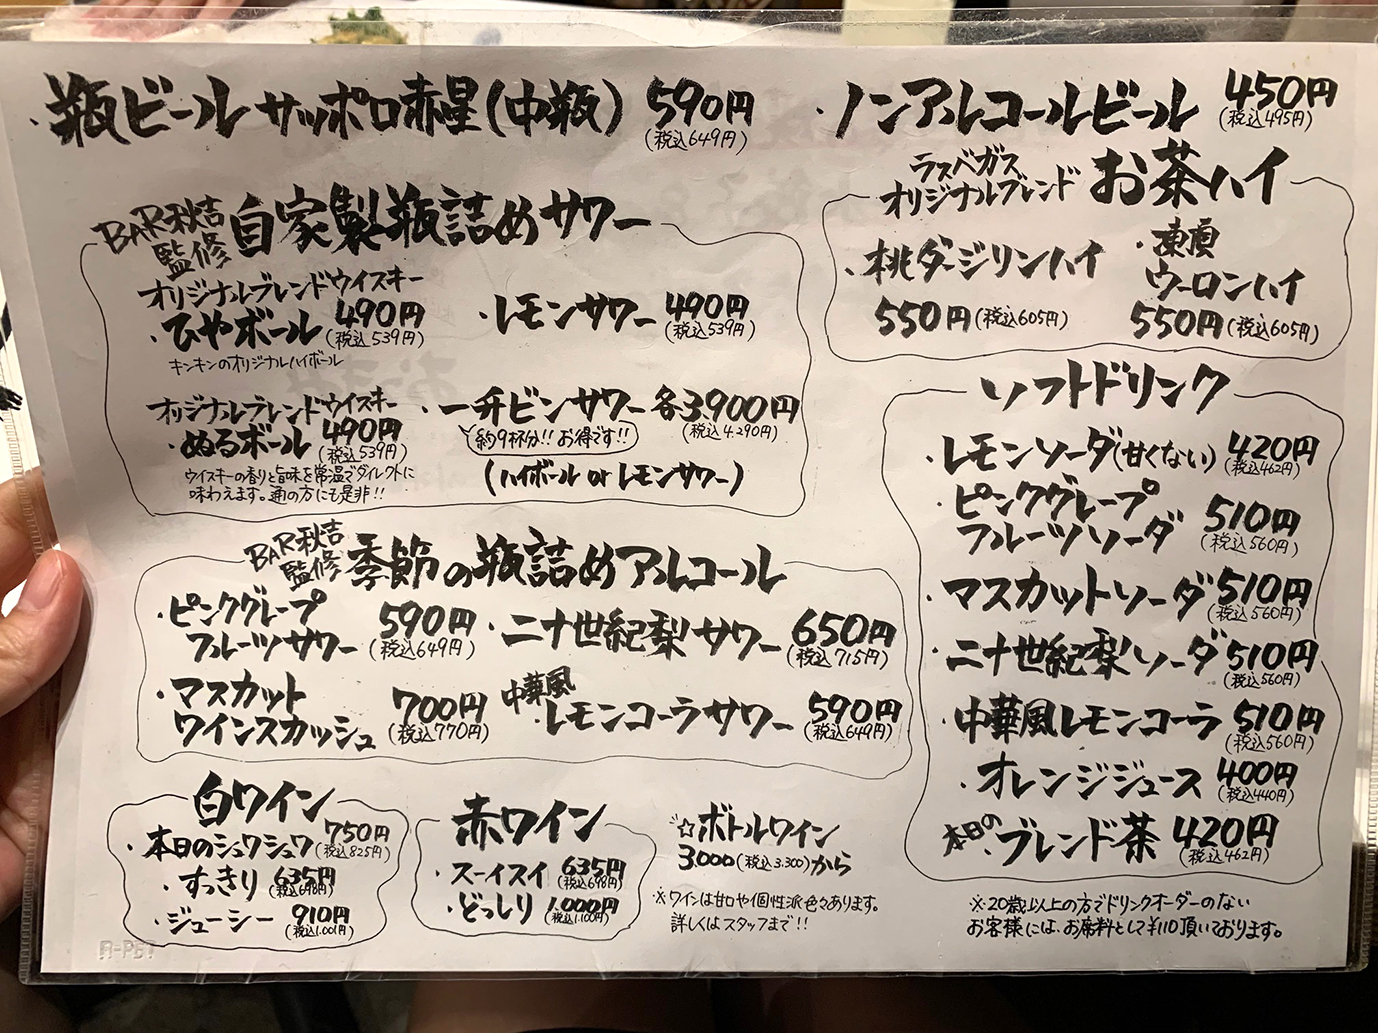 ・瓶ビール サッポロ赤星(中瓶) 590円
(税込649円)
・ノンアルコールビール 450円
(税込495円)
BAR秋吉
監修
自家製瓶詰めサワー
オリジナルブレンドウイスキー
・ひやボール 490円
(税込539円)
キンキンのオリジナルハイボール
・レモンサワー 490円
(税込539円)
オリジナルブレンドウイスキー
・ぬるボール 490円
(税込539円)
ウイスキーの香りと旨味を常温でダイレクトに
味わえます。通の方にも是非!!
・一升ビンサワー 各3,900円
(税込4,290円)
約9杯分!! お得です!!
(ハイボール or レモンサワー)
ラスベガス
オリジナルブレンド
お茶ハイ
・桃ダージリンハイ
550円(税込605円)
・凍頂
ウーロンハイ
550円(税込605円)
BAR秋吉
監修
季節の瓶詰めアルコール
・ピンクグレープ
フルーツサワー
590円
(税込649円)
・二十世紀梨サワー 650円
(税込715円)
・マスカット
ワインスカッシュ
700円
(税込770円)
中華風
・レモンコーラサワー 590円
(税込649円)
ソフトドリンク
・レモンソーダ(甘くない) 420円
(税込462円)
・ピンクグレープ
フルーツソーダ
510円
(税込560円)
・マスカットソーダ 510円
(税込560円)
・二十世紀梨ソーダ 510円
(税込560円)
・中華風レモンコーラ 510円
(税込560円)
・オレンジジュース 400円
(税込440円)
本日の
・ブレンド茶 420円
(税込462円)
白ワイン
・本日のシュワシュワ 750円
(税込825円)
・すっきり 635円
(税込698円)
・ジューシー 910円
(税込1,001円)
赤ワイン
・スーイスイ 635円
(税込698円)
・どっしり 1,000円
(税込1,100円)
☆ボトルワイン
3,000(税込3,300)から
※ワインは甘口や個性派色々あります。
詳しくはスタッフまで!!
※20歳以上の方でドリンクオーダーのない
お客様には、お席料として¥110頂いております。
A-PET